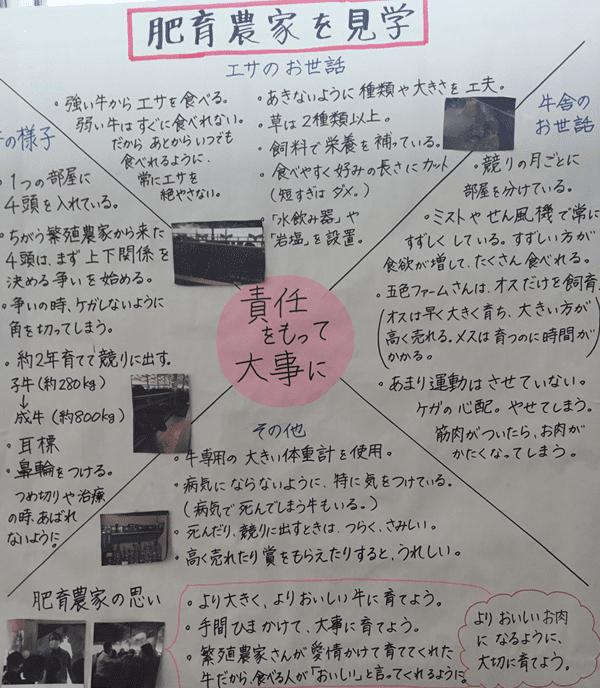 肥育農家を見学
エサのお世話
・強い牛からエサを食べる。
弱い牛はすぐに食べれない。
だからあとからいつでも
食べれるように、
常にエサを
絶やさない。
・あきないように種類や大きさを工夫。
・草は2種類以上。
・飼料で栄養を補っている。
・食べやすく好みの長さにカット
(短すぎはダメ。)
・「水飲み器」や
「岩塩」を設置。
の様子
・1つの部屋に
4頭を入れている。
・ちがう繁殖農家から来た
4頭は、まず上下関係を
決める争いを始める。
・争いの時、ケガしないように
角を切ってしまう。
・約2年育てて競りに出す。
子牛(約280kg)
↓
成牛(約800kg)
・耳標
・鼻輪をつける。
つめ切りや治療
の時、あばれ
ないように。
牛舎の
お世話
・競りの月ごとに
部屋を分けている。
・ミストやせん風機で常に
すずしくしている。すずしい方が
食欲が増して、たくさん食べれる。
・五色ファームさんは、オスだけを飼育。
(オスは早く大きく育ち、大きい方が
高く売れる。メスは育つのに時間が
かかる。)
・あまり運動はさせていない。
ケガの心配。やせてしまう。
筋肉がついたら、お肉が
かたくなってしまう。
責任
をもって
大事に
その他
・牛専用の大きい体重計を使用。
・病気にならないように、特に気をつけている。
(病気で死んでしまう牛もいる。)
・死んだり、競りに出すときは、つらく、さみしい。
・高く売れたり賞をもらえたりすると、うれしい。
肥育農家の思い
・より大きく、よりおいしい牛に育てよう。
・手間ひまかけて、大事に育てよう。
・繁殖農家さんが愛情かけて育ててくれた
牛だから、食べる人が「おいしい」と言ってくれるように。
よりおいしいお肉
になるように、
大切に育てよう。